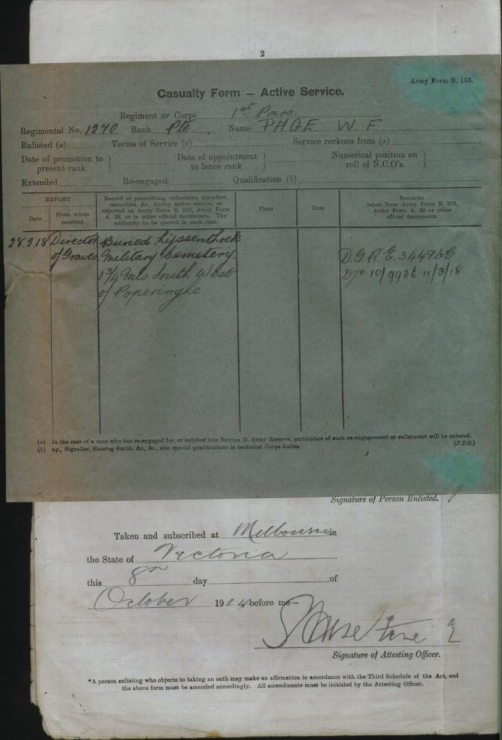 2
Army Form B. 103.
Casualty Form — Active Service.
Regiment or Corps 1st
Regimental No. 1270 Rank Pte Name PAGE W. F
Enlisted (a) Terms of Service (a) Service reckons from (a)
Date of promotion to present rank } Date of appointment to lance rank } Numerical position on roll of N.C.O's. }
Extended Re-engaged Qualification (b)
REPORT
Date
From whom received
Record of promotions, reductions, transfers, casualties, &c., during active service, as reported on Army Form B. 213, Army Form A. 36, or in other official documents. The authority to be quoted in each case.
Place
Date
Remarks taken from Army Form B. 213, Army Form A. 36 or other official documents.
28.2.18 Director of Graves
Buried Lijssenthoek
Military Cemetery
1¾ Mls South West
of Poperinghe
D.G.R.E. 34493G
10/993E 11/3/18
(a) In the case of a man who has re-engaged for, or enlisted into Section D. Army Reserve, particulars of such re-engagement or enlistment will be entered.
(b) e.g., Signaller, Shoeing Smith, &c., &c., also special qualifications in technical Corps duties. (P.T.O.)
Signature of Person Enlisted.
Taken and subscribed at Melbourne in
the State of Victoria
this 8th day of
October 1914 before me—
Signature of Attesting Officer.
*A person enlisting who objects to taking an oath may make an affirmation in accordance with the Third Schedule of the Act, and
the above form must be amended accordingly. All amendments must be initialed by the Attesting Officer.